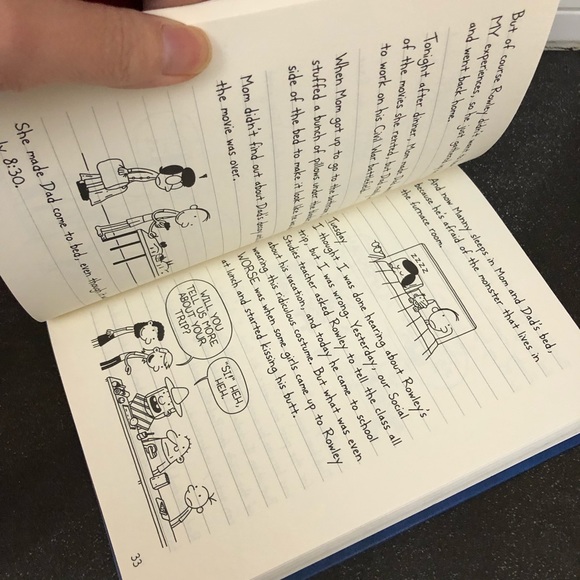 But of course Rowley didn't
MY experiences, so he just
and went back home.
Tonight after dinner, Mom made
of the movies she rented, but Dad
to work on his Civil War battlefield.
When Mom got up to go to the bathroom,
stuffed a bunch of pillows under the
side of the bed to make it look like he
Mom didn't find out about Dad's decoy
the movie was over.
She made Dad come to bed, even though
8:30.
And now Manny sleeps in Mom and Dad's bed,
because he's afraid of the monster that lives in
the furnace room.
zzzz
Tuesday
I thought I was done hearing about Rowley's
trip, but I was wrong. Yesterday, our Social
Studies teacher asked Rowley to tell the class all
about his vacation, and today he came to school
wearing this ridiculous costume. But what was even
WORSE was when some girls came up to Rowley
at lunch and started kissing his butt.
WILL YOU
TELL US MORE
ABOUT YOUR
TRIP?
"SI!" HEH,
HEH.
33